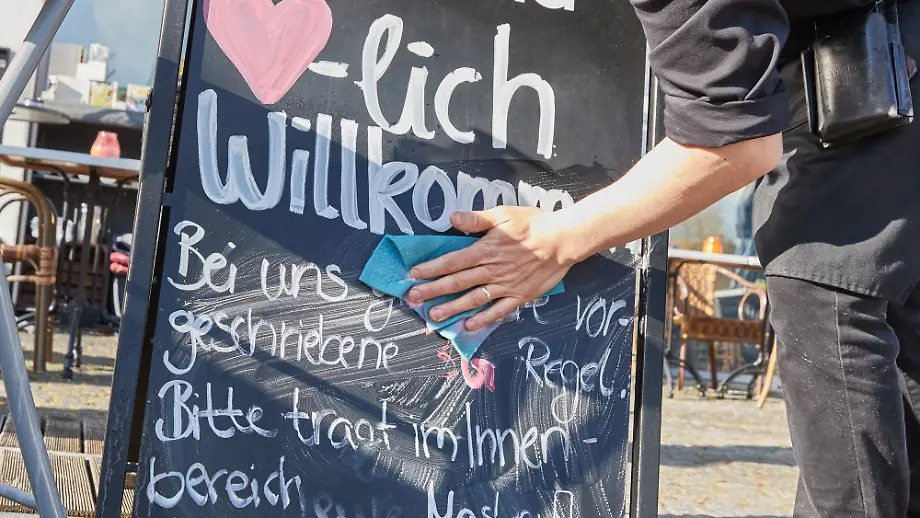 -lich
Willkomm
Bei uns g re vor-
geschriebene Regel.
Bitte tragt im Innen-
bereich